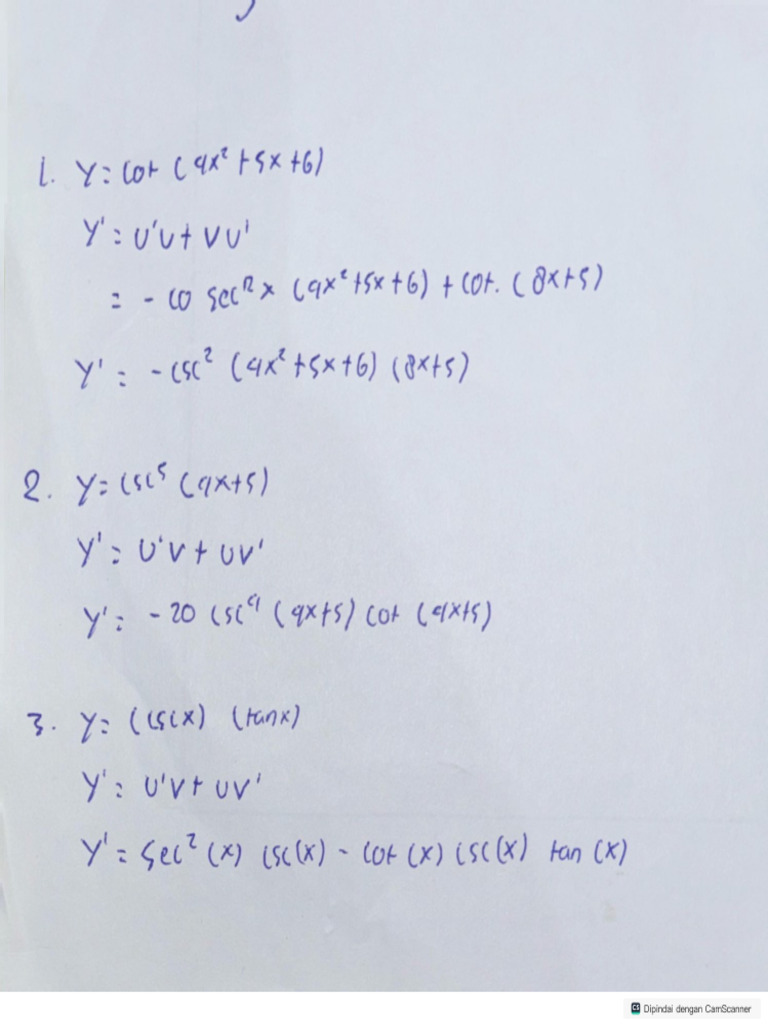 1. Y = cot (4x² + 5x + 6)
Y' = U'U + VU'
= - co sec² x (4x² + 5x + 6) + cot. (8x+5)
Y' = - csc² (4x² + 5x + 6) (8x+5)
2. Y = csc⁵ (4x+5)
Y' = U'V + UV'
Y' = -20 csc⁴ (4x+5) cot (4x+5)
3. Y = (csc x) (tan x)
Y' = U'V + UV'
Y' = sec² (x) csc(x) - cot (x) csc(x) tan (x)
CS Dipindai dengan CamScanner